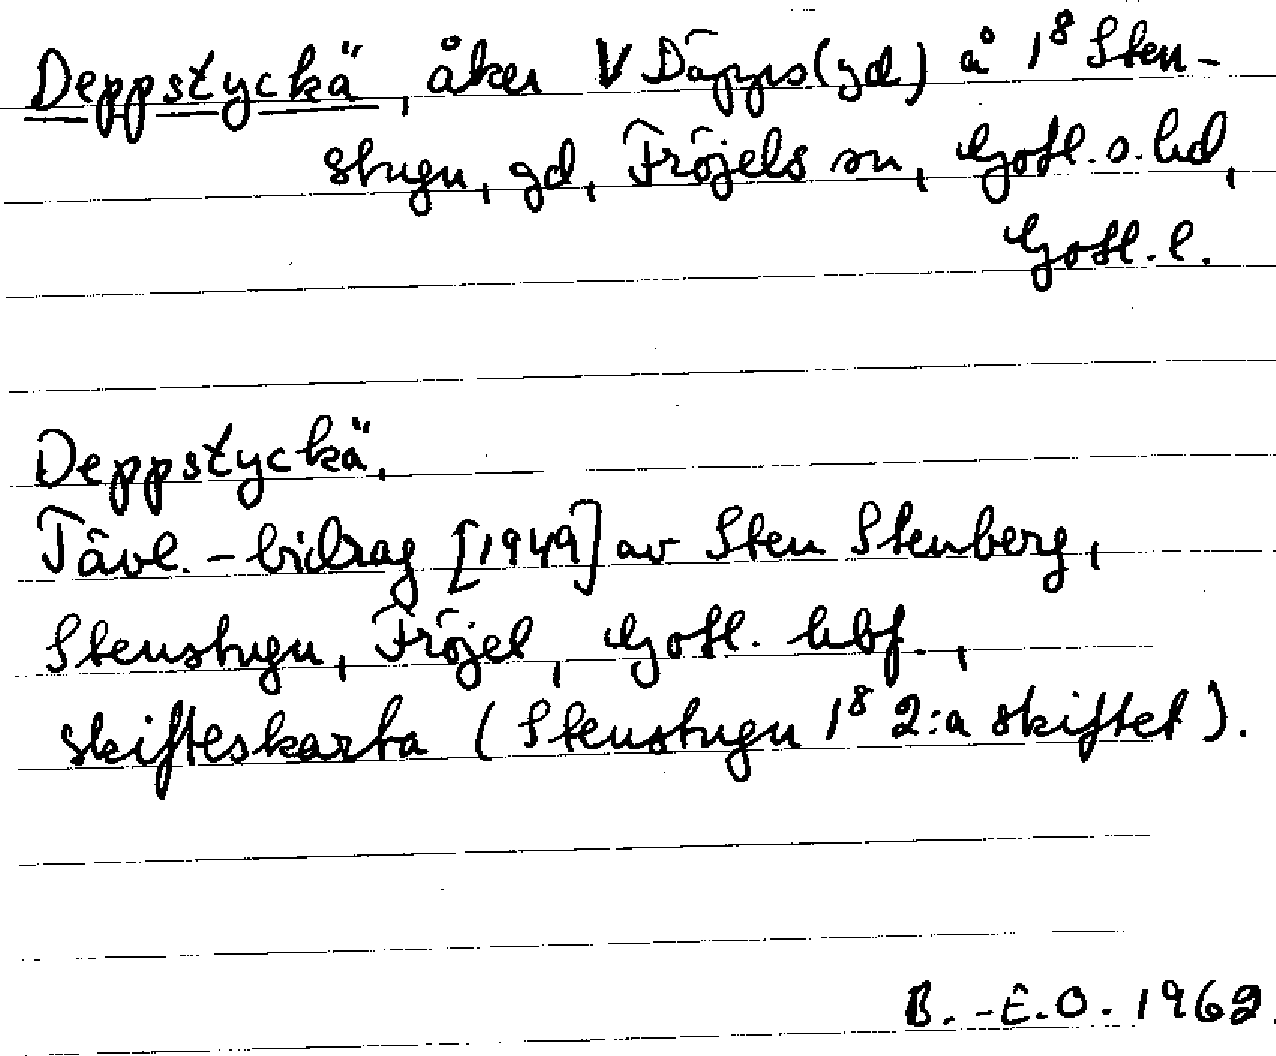 Deppstyckä, åker V Däpps(gd) å 1⁸ Sten-
stugu, gd, Fröjels sn, Gotl. s. hd,
Gotl. l.
Deppstyckä.
Tävl.-bidrag [1949] av Sten Stenberg,
Stenstugu, Fröjel, Gotl. hbf.,
skifteskarta (Stenstugu 1⁸ 2:a skiftet).
B.-E.O. 1962